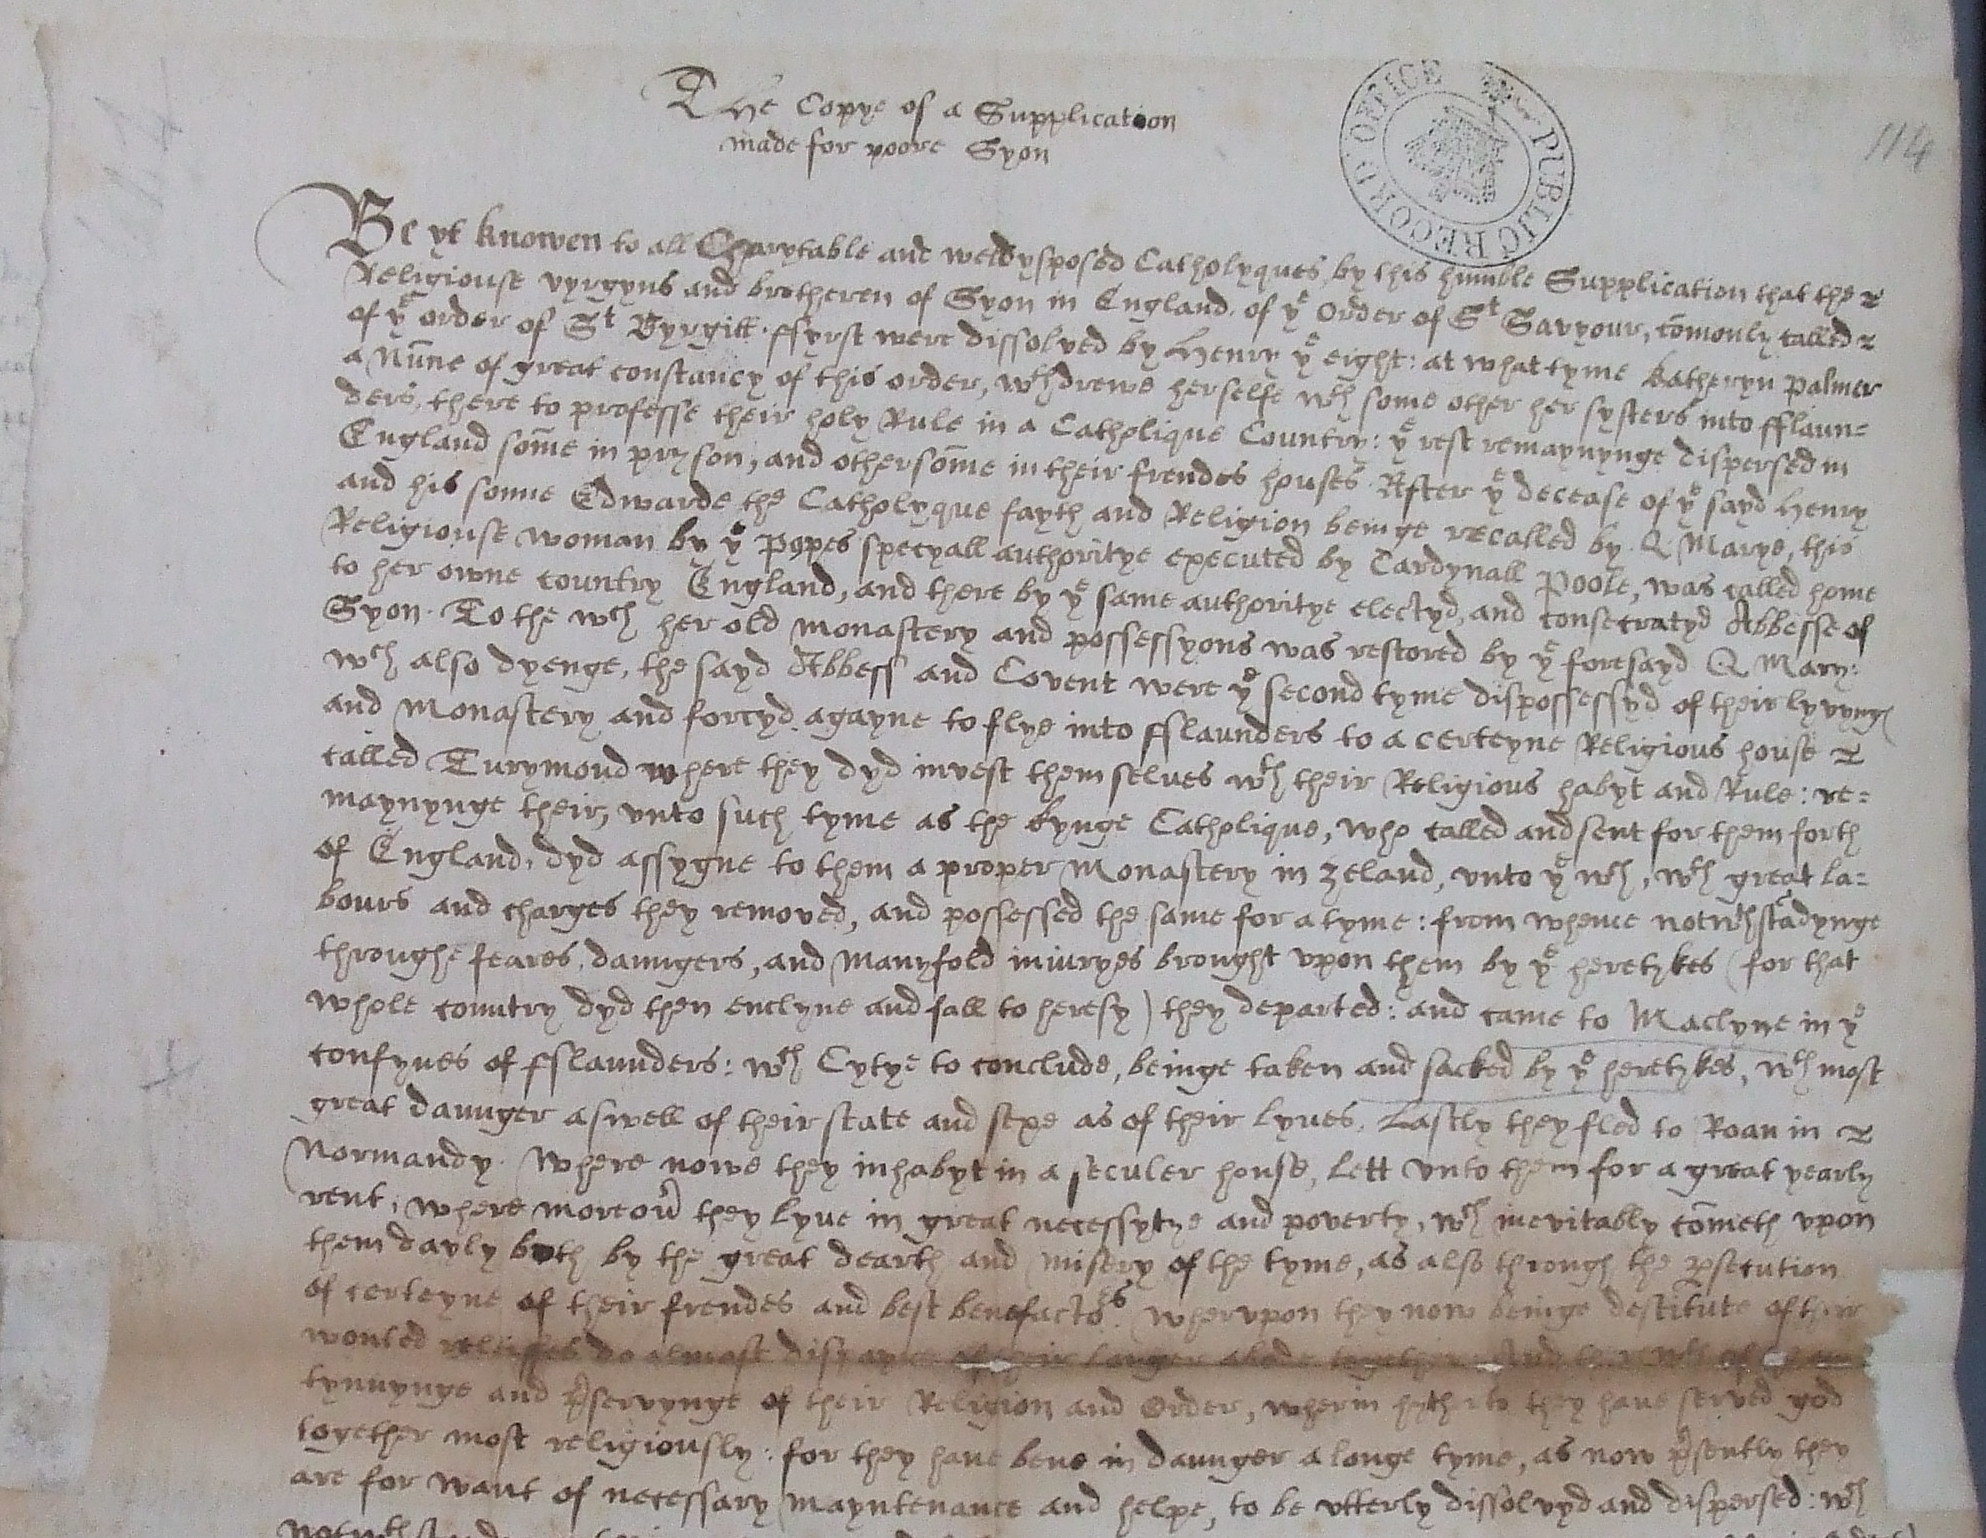 The Copye of a Supplication
made for poore Syon
PUBLIC RECORD OFFICE
114
Be yt knowen to all Charytable and weldysposed Catholyques, by this humble Supplication that the
Religiouse vyrgyns and bretheren of Syon in England, of yᵉ Order of Sᵗ Savyour, com̄only called
of yᵉ order of Sᵗ Byrgitt. ffyrst were dissolved by Henry yᵉ eight: at what tyme Katheryn Palmer
a Nun̄e of great constancy of this order, wᵗʰdrewe herselfe wᵗʰ some other her systers into fflaun=
ders, there to professe their holy Rule in a Catholique Country: yᵉ rest remaynynge dispersed in
England som̄e in pryson, and othersom̄e in their frendes houses. After yᵉ decease of yᵉ sayd Henry
and his sonne Edwarde the Catholyque fayth and Religion beinge recalled by Q Marye, this
Religiouse woman by yᵉ Popes specyall authoritye executed by Cardynall Poole, was called home
to her owne country England, and there by yᵉ same authoritye electyd, and consecratyd Abbesse of
Syon. To the wᶜʰ her old monastery and possessyons was restored by yᵉ foresayd Q Mary:
wᶜʰ also dyenge, the sayd Abbess and Covent were yᵉ second tyme dispossessyd of their lyvyng
and Monastery and forcyd agayne to flye into fflaunders to a certeyne Religious house
called Turymond where they dyd invest them selves wᵗʰ their Religious habyt and Rule: re=
maynynge their, unto such tyme as the Kynge Catholique, who called and sent for them forth
of England, dyd assygne to them a proper Monastery in Zeland, unto yᵉ wᶜʰ, wᵗʰ great la=
bours and charges they removed, and possessed the same for a tyme: from whence notwᵗʰstādynge
throughe feares, daungers, and Manyfold iniuryes brought vpon them by yᵉ heretykes (for that
whole country dyd then enclyne and fall to heresy) they departed: and came to Maclyne in yᵉ
confynes of fflaunders: wᶜʰ Cytye to conclude, beinge taken and sacked by yᵉ heretykes, wᵗʰ most
great daunger aswell of their state and sexe as of their lyves. Lastly they fled to Roan in
Normandy. Where nowe they inhabyt in a seculer house, lett vnto them for a great yearly
rent, where moreov̄ they lyve in great necessytye and poverty, wᶜʰ inevitably com̄eth vpon
them dayly both by the great dearth and misery of the tyme, as also through the ꝑsecution
of certeyne of their frendes and best benefactoʳˢ. Whervpon they now beinge destitute of their
wonted relieffes do almost dispayre of their longer abode together: And
tynuynge and p̄servynge of their Religion and Order, wherin hytherto they have served god
together most religiously: for they have bene in daunger a longe tyme, as now p̄sently they
are for want of necessary mayntenance and helpe, to be vtterly dissolvyd and dispersed: wᶜʰ